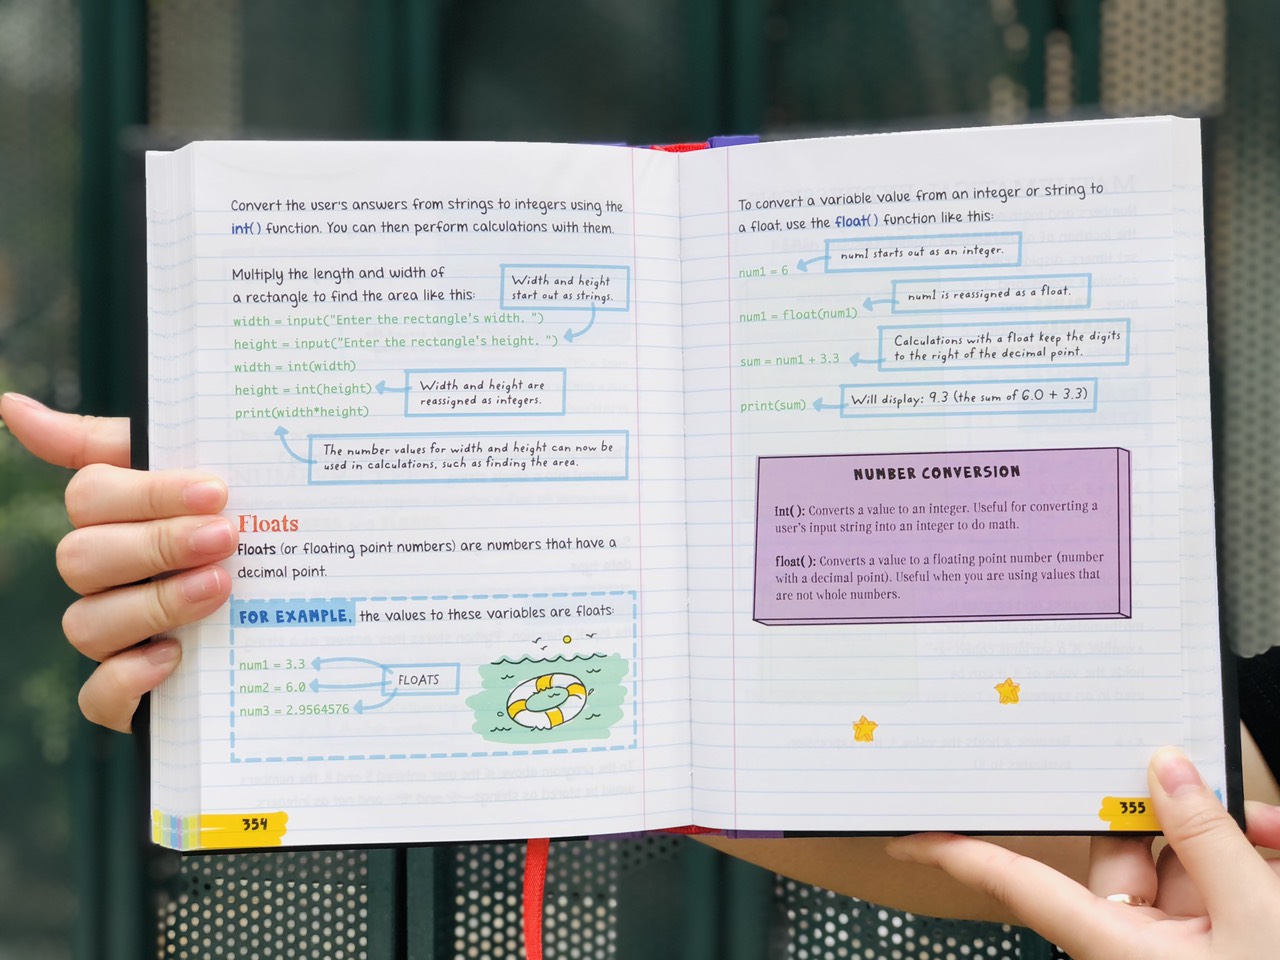 Convert the user's answers from strings to integers using the
int() function. You can then perform calculations with them.
Multiply the length and width of
a rectangle to find the area like this:
Width and height
start out as strings.
width = input("Enter the rectangle's width. ")
height = input("Enter the rectangle's height. ")
width = int(width)
height = int(height)
print(width*height)
Width and height are
reassigned as integers.
The number values for width and height can now be
used in calculations, such as finding the area.
Floats
Floats (or floating point numbers) are numbers that have a
decimal point.
FOR EXAMPLE, the values to these variables are floats:
num1 = 3.3
num2 = 6.0
num3 = 2.9564576
FLOATS
354
To convert a variable value from an integer or string to
a float, use the float() function like this:
num1 = 6
num1 starts out as an integer.
num1 = float(num1)
num1 is reassigned as a float.
sum = num1 + 3.3
Calculations with a float keep the digits
to the right of the decimal point.
print(sum)
Will display: 9.3 (the sum of 6.0 + 3.3)
NUMBER CONVERSION
int( ): Converts a value to an integer. Useful for converting a
user's input string into an integer to do math.
float( ): Converts a value to a floating point number (number
with a decimal point). Useful when you are using values that
are not whole numbers.
355